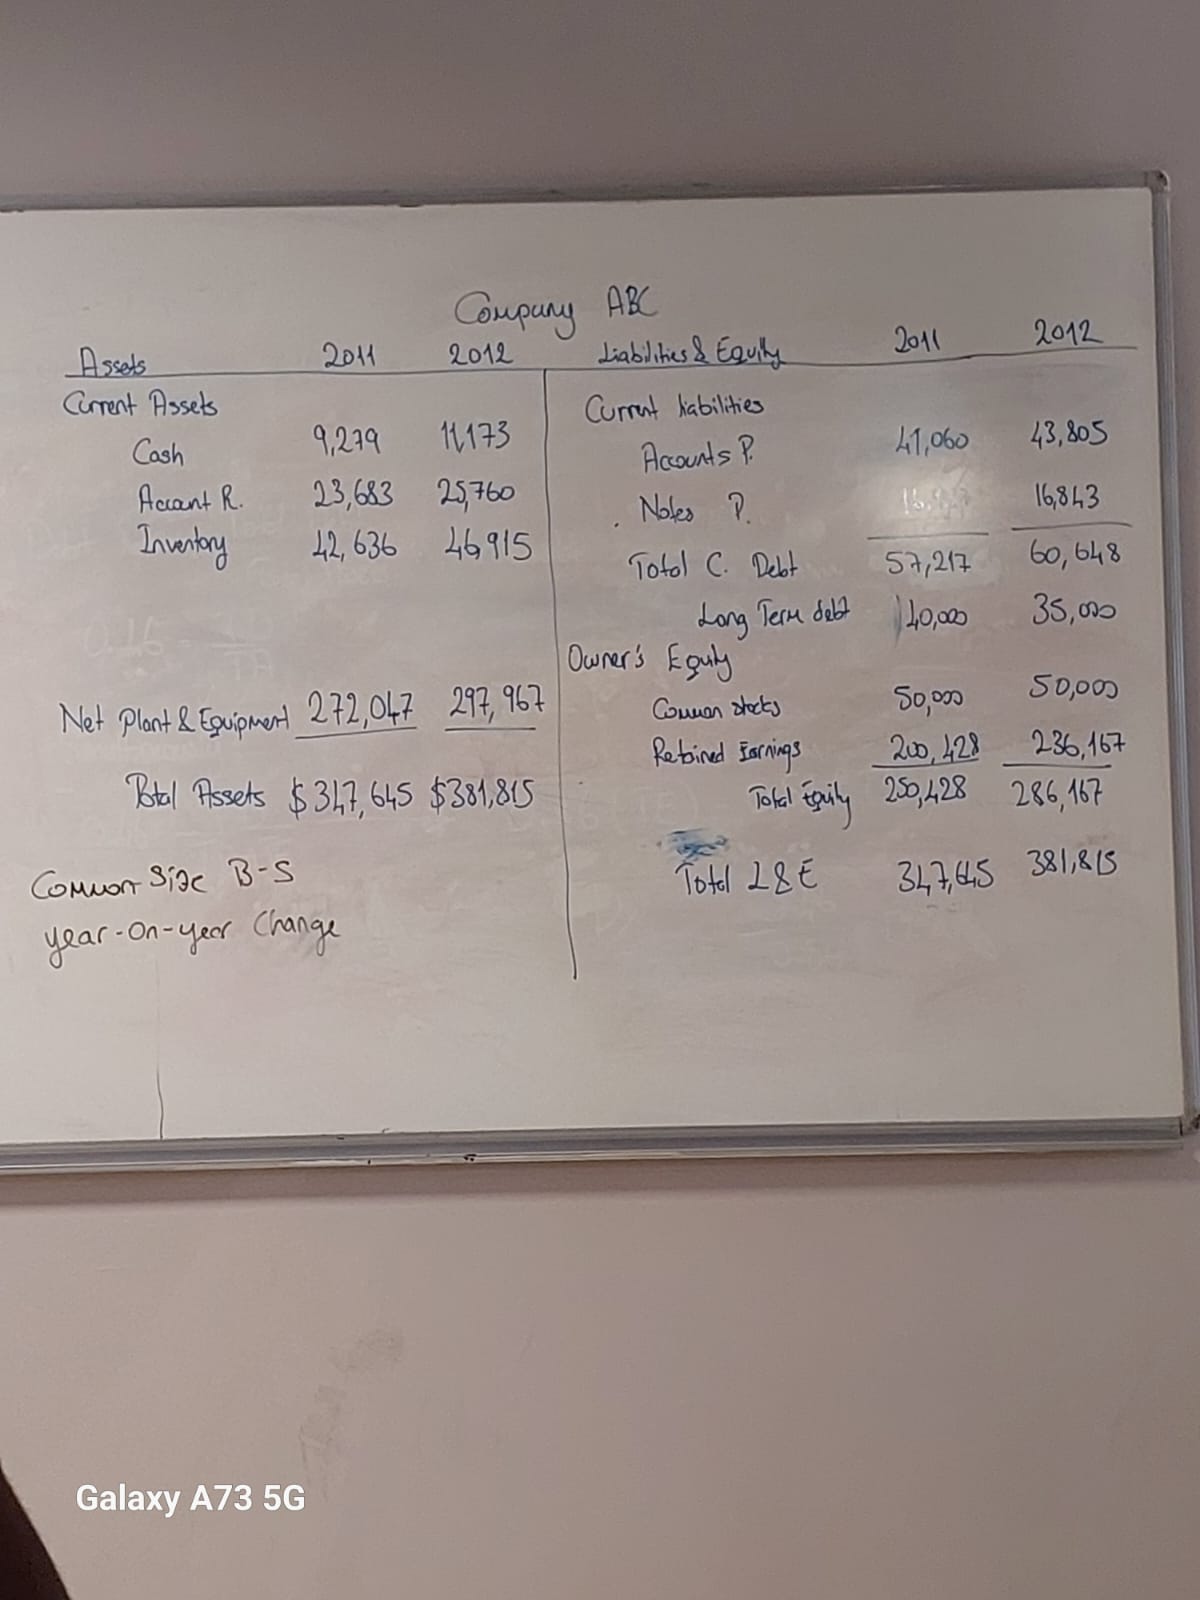 Company ABC
Assets 2011 2012
Current Assets
Cash 9,279 11,173
Account R. 23,683 25,760
Inventory 42,636 46,915
Net Plant & Equipment 272,047 297,967
Total Assets $347,645 $381,815
Common Size B-S
year-on-year Change
Liabilities & Equity 2011 2012
Current liabilities
Accounts P. 41,060 43,805
Notes P. 16,843
Total C. Debt 57,217 60,648
Long Term debt 40,000 35,000
Owner's Equity
Common stocks 50,000 50,000
Retained Earnings 200,428 236,167
Total Equity 250,428 286,167
Total L & E 347,645 381,815
Galaxy A73 5G